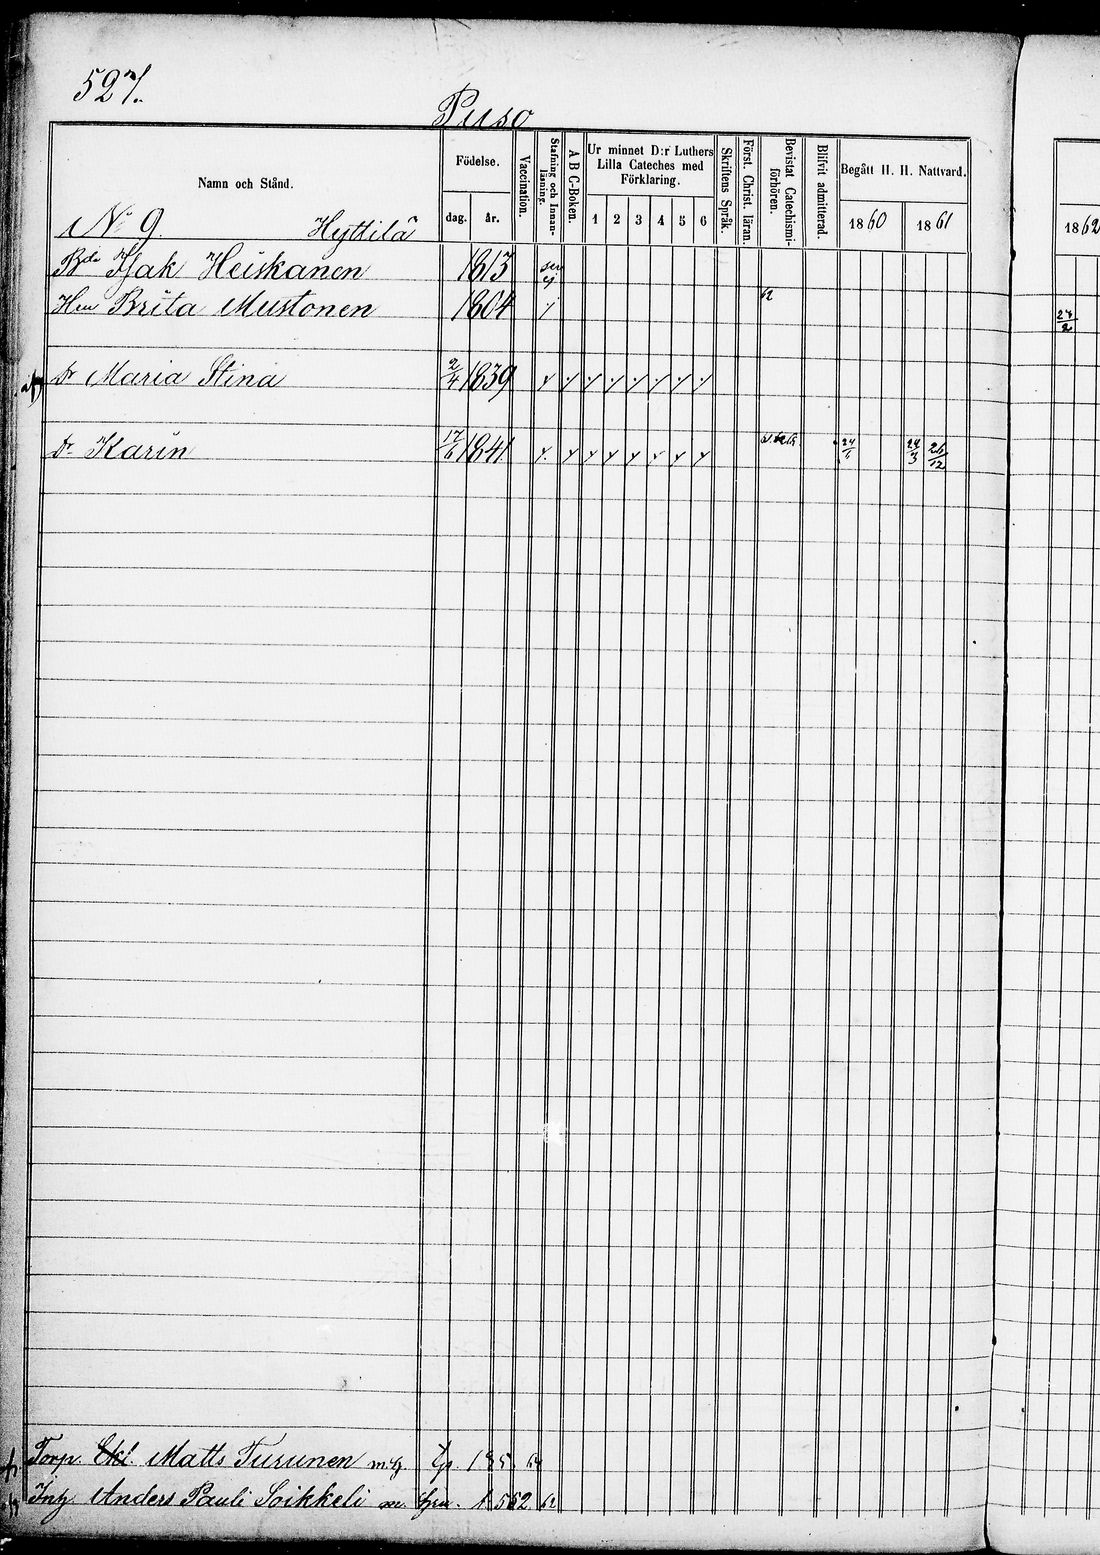 527.
Puso
Namn och Stånd.
Födelse.
dag. år.
Vaccination.
Stafning och Innanläsning.
A B C-Boken.
Ur minnet D:r Luthers
Lilla Cateches med
Förklaring.
1 2 3 4 5 6
Skriftens Språk.
Först. Christ. läran.
Bevistat Catechismiförhören.
Blifvit admitterad.
Begått H. H. Nattvard.
1860 1861
1862
No 9. Hyttilä
Bde Isak Heiskanen 1813
Hu Brita Mustonen 1804 62
dr Maria Stina 2/4 1839
dr Karin 17/6 1841 24/6 24/3 26/12
Torp. Matts Turunen
Inh Anders Pauli Soikkeli 562 62